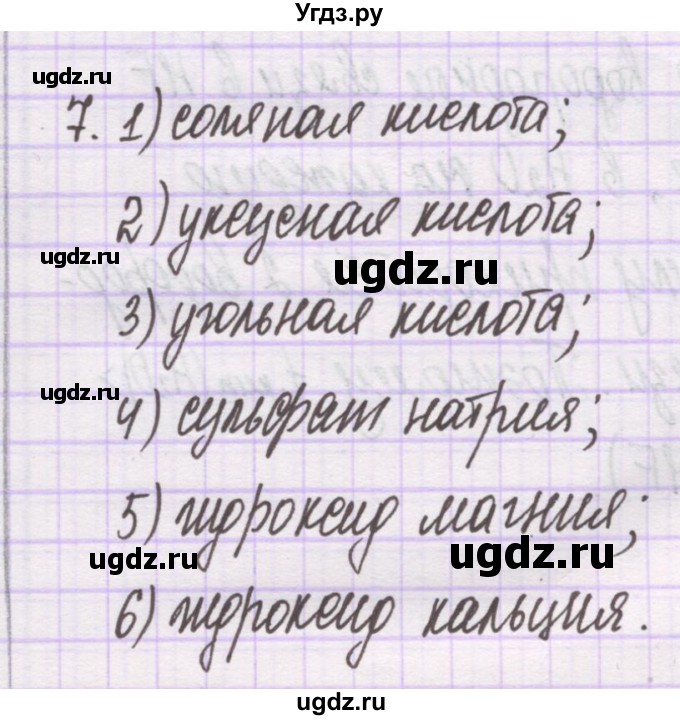 Угдз.ру
ugdz.ru
7. 1) соляная кислота;
2) уксусная кислота;
ugdz.ru
ugdz.ru
3) угольная кислота;
ugdz.ru
4) сульфат натрия;
5) гидроксид магния;
ugdz.ru
ugdz.ru
6) гидроксид кальция.
ugdz.ru